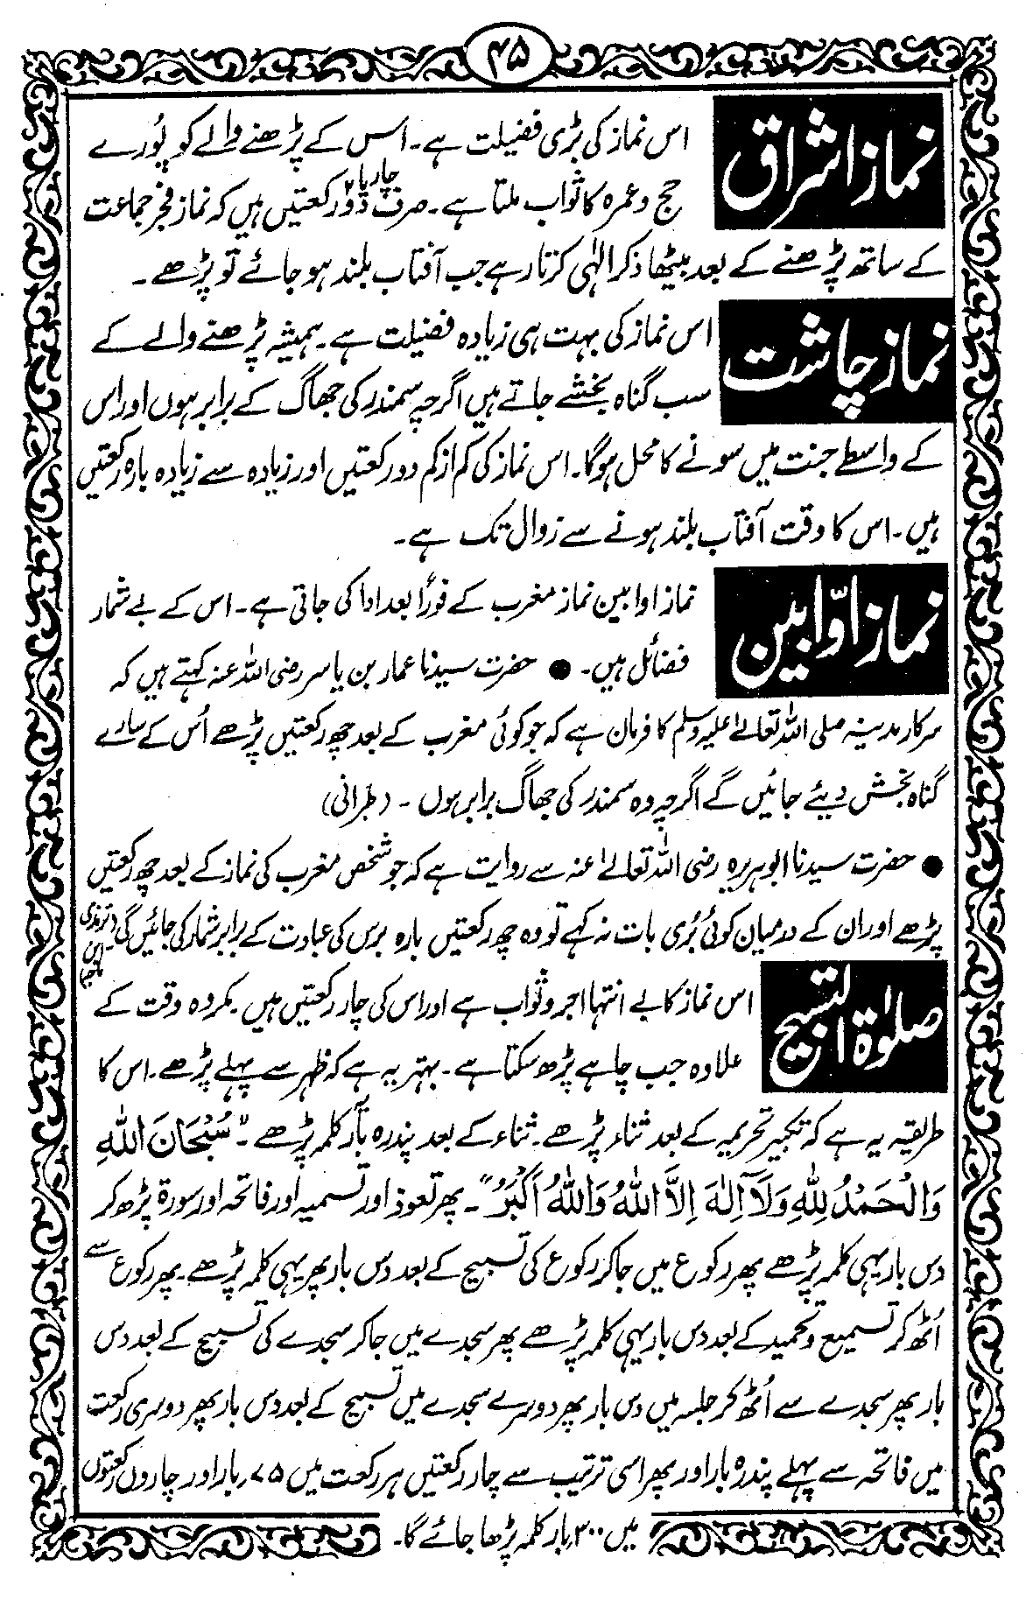 ۴۵
نماز اشراق
اس نماز کی بڑی فضیلت ہے۔ اس کے پڑھنے والے کو پُورے
حج و عمرہ کا ثواب ملتا ہے۔ صرف دو ۲ یا چار رکعتیں ہیں کہ نماز فجر جماعت
کے ساتھ پڑھنے کے بعد بیٹھا ذکر الٰہی کرتا رہے جب آفتاب بلند ہو جائے تو پڑھے۔
نماز چاشت
اس نماز کی بہت ہی زیادہ فضیلت ہے۔ ہمیشہ پڑھنے والے کے
سب گناہ بخشے جاتے ہیں اگرچہ سمندر کی جھاگ کے برابر ہوں اور اس
کے واسطے جنت میں سونے کا محل ہوگا۔ اس نماز کی کم از کم دو رکعتیں اور زیادہ سے زیادہ بارہ رکعتیں
ہیں۔ اس کا وقت آفتاب بلند ہونے سے زوال تک ہے۔
نماز اوّابین
نماز اوابین نماز مغرب کے فوراً بعد ادا کی جاتی ہے۔ اس کے بے شمار
فضائل ہیں۔ ● حضرت سیدنا عمار بن یاسر رضی اللہ عنہ کہتے ہیں کہ
سرکار مدینہ صلی اللہ تعالےٰ علیہ وسلم کا فرمان ہے کہ جو کوئی مغرب کے بعد چھ رکعتیں پڑھے اُس کے سارے
گناہ بخش دیئے جائیں گے اگرچہ وہ سمندر کی جھاگ برابر ہوں ۔ (طبرانی)
● حضرت سیدنا ابوہریرہ رضی اللہ تعالےٰ عنہ سے روایت ہے کہ جو شخص مغرب کی نماز کے بعد چھ رکعتیں
پڑھے اور ان کے درمیان کوئی بُری بات نہ کہے تو وہ چھ رکعتیں بارہ برس کی عبادت کے برابر شمار کی جائیں گی۔ (ترمذی ابن ماجہ)
صلوٰۃ التسبیح
اس نماز کا بے انتہا اجر و ثواب ہے اور اس کی چار رکعتیں ہیں۔ مکروہ وقت کے
علاوہ جب چاہے پڑھ سکتا ہے۔ بہتر یہ ہے کہ ظہر سے پہلے پڑھے۔ اس کا
طریقہ یہ ہے کہ تکبیر تحریمہ کے بعد ثناء پڑھے۔ ثناء کے بعد پندرہ بار کلمہ پڑھے۔ "سُبْحَانَ اللّٰهِ
وَالْحَمْدُ لِلّٰهِ وَلَآ اِلٰهَ اِلَّا اللّٰهُ وَاللّٰهُ اَكْبَرُ"۔ پھر تعوذ اور تسمیہ اور فاتحہ اور سورۃ پڑھ کر
دس بار یہی کلمہ پڑھے پھر رکوع میں جا کر رکوع کی تسبیح کے بعد دس بار پھر یہی کلمہ پڑھے۔ پھر رکوع سے
اُٹھ کر تسمیع و تحمید کے بعد دس بار یہی کلمہ پڑھے پھر سجدے میں جا کر سجدے کی تسبیح کے بعد دس
بار پھر سجدے سے اُٹھ کر جلسہ میں دس بار پھر دوسرے سجدے میں تسبیح کے بعد دس بار پھر دوسری رکعت
میں فاتحہ سے پہلے پندرہ بار اور پھر اسی ترتیب سے چار رکعتیں ہر رکعت میں ۷۵ بار اور چاروں رکعتوں
میں ۳۰۰ بار کلمہ پڑھا جائے گا۔